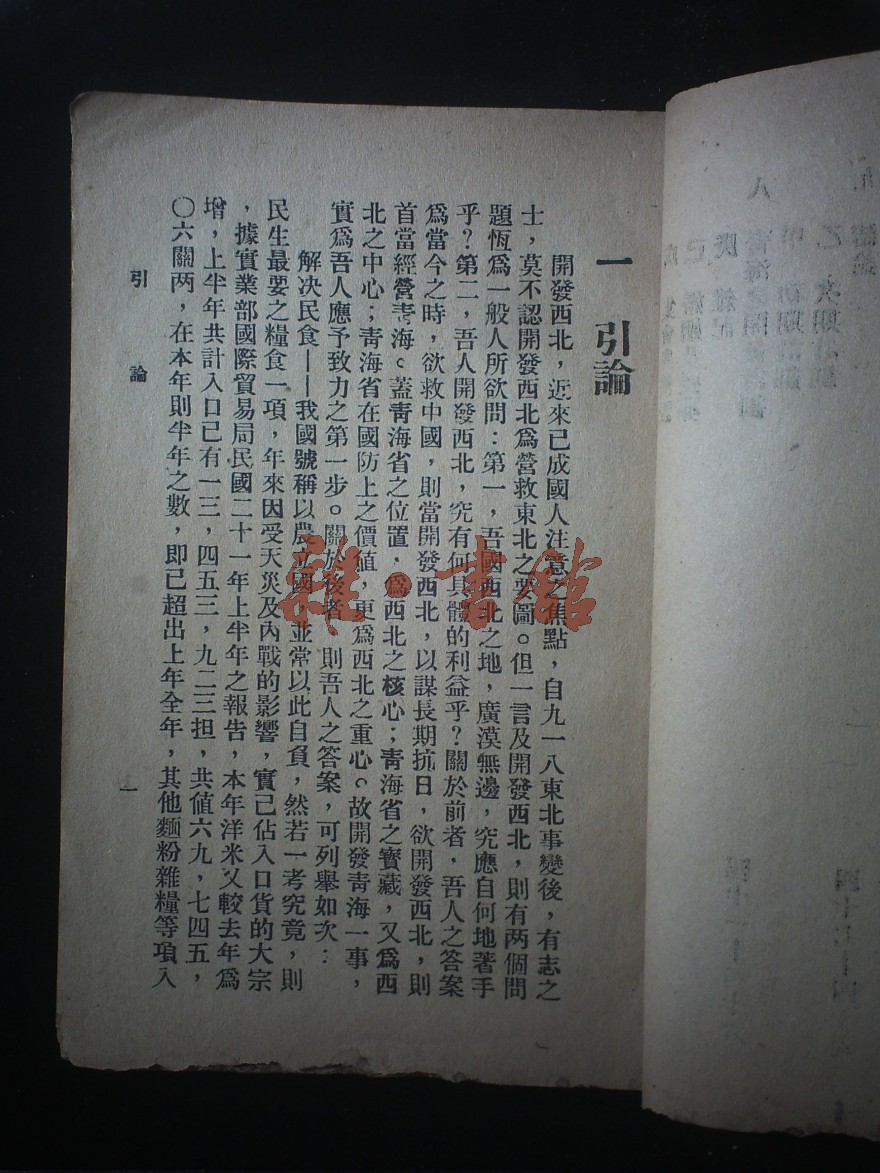 一 引論
開發西北，近來已成國人注意之焦點，自九一八東北事變後，有志之
士，莫不認開發西北爲營救東北之要圖。但一言及開發西北，則有两個問
題恆爲一般人所欲問：第一，吾國西北之地，廣漠無邊，究應自何地著手
乎？第二，吾人開發西北，究有何具體的利益乎？關於前者，吾人之答案
爲當今之時，欲救中國，則當開發西北，以謀長期抗日，欲開發西北，則
首當經營靑海。蓋靑海省之位置，爲西北之核心；靑海省之寳藏，又爲西
北之中心；靑海省在國防上之價値，更爲西北之重心。故開發靑海一事，
實爲吾人應予致力之第一步。關於後者，則吾人之答案，可列舉如次：
解决民食——我國號稱以農立國，並常以此自負，然若一考究竟，則
民生最要之糧食一項，年來因受天災及內戰的影響，實已佔入口貨的大宗
，據實業部國際貿易局民國二十一年上半年之報告，本年洋米又較去年爲
增，上半年共計入口已有一三，四五三，九二三担，共値六九，七四五，
〇六關两，在本年則半年之數，即已超出上年全年，其他麵粉雜糧等項入
引 論
一
雜·書館
八